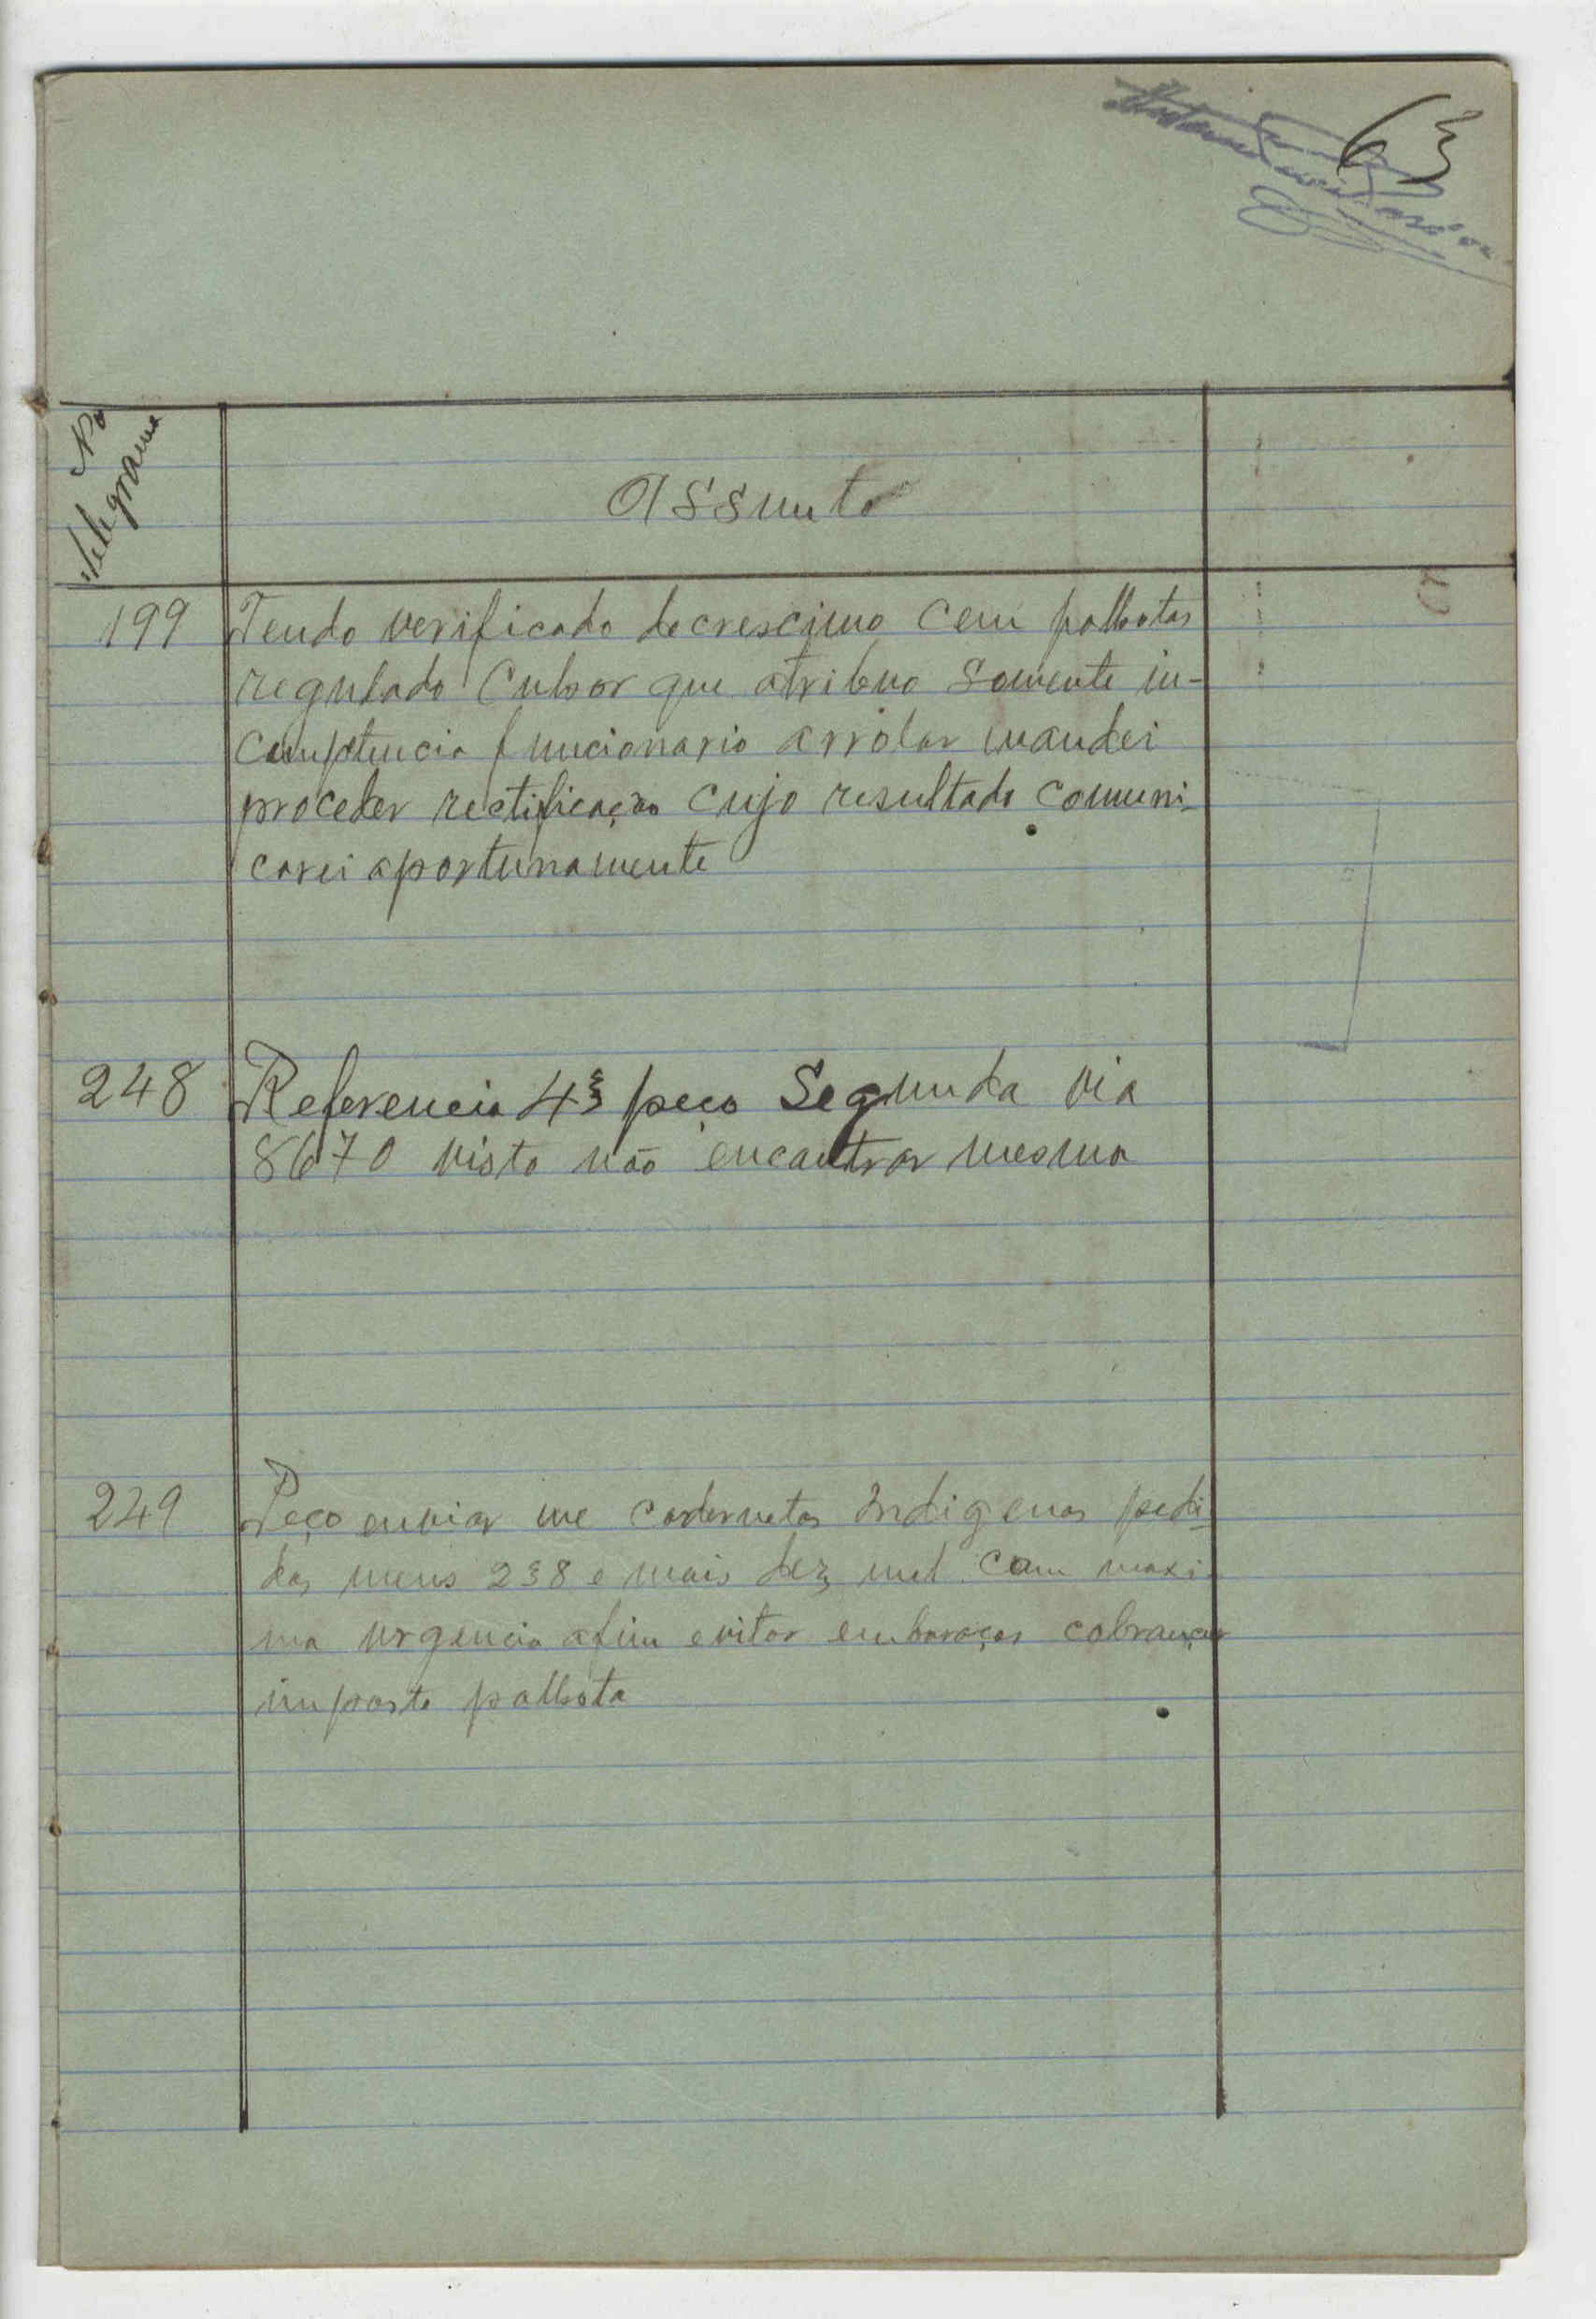 63
No
telegrama
Assunto
199 Tendo verificado decrescimo cem palhotas
regulado Cubor que atribuo somente in-
competencia funcionario arrolar mandei
proceder rectificação cujo resultado comuni-
carei oportunamente
248 Referencia 43 peço Segunda via
8670 visto não encontrar mesma
249 Peço enviar me cadernetas Indigenas pedi-
das meus 238 e mais dez mil com maxi-
ma urgencia afim evitar embaraços cobranças
imposto palhota